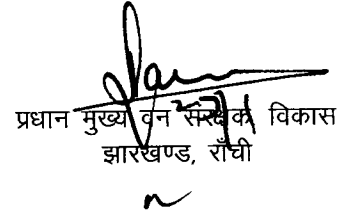 प्रधान मुख्य वन संरक्षक विकास
झारखण्ड, राँची